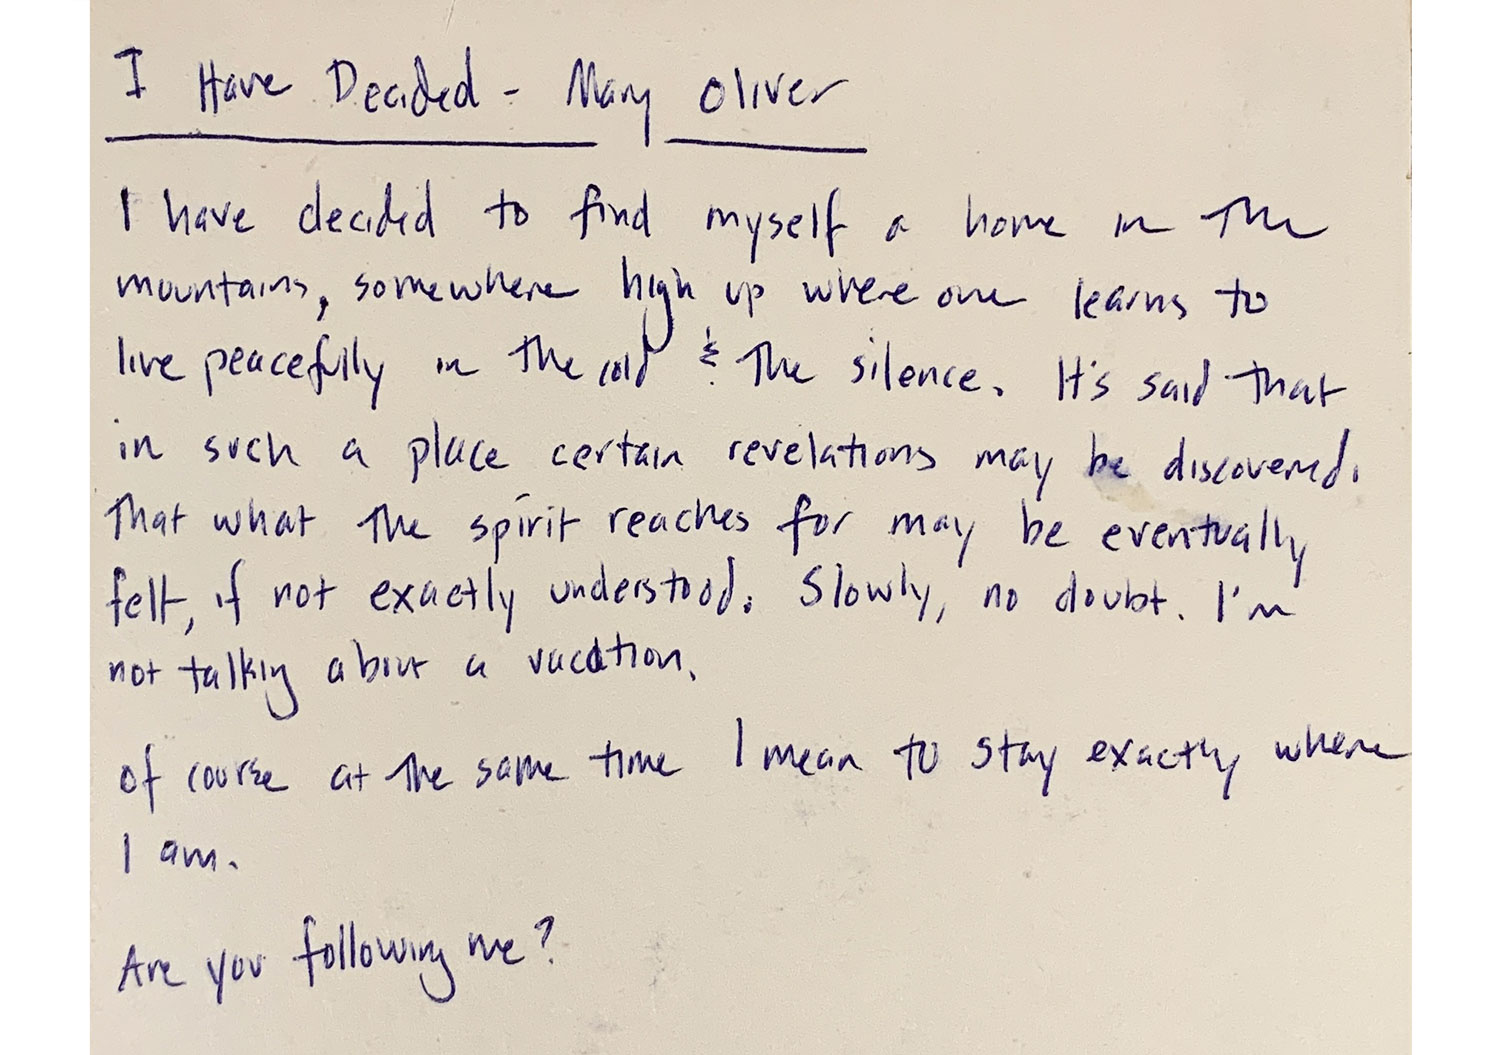 I Have Decided - Mary Oliver
I have decided to find myself a home in the
mountains, somewhere high up where one learns to
live peacefully in the cold & the silence. It's said that
in such a place certain revelations may be discovered.
That what the spirit reaches for may be eventually
felt, if not exactly understood. Slowly, no doubt. I'm
not talking about a vacation.
Of course at the same time I mean to stay exactly where
I am.
Are you following me?